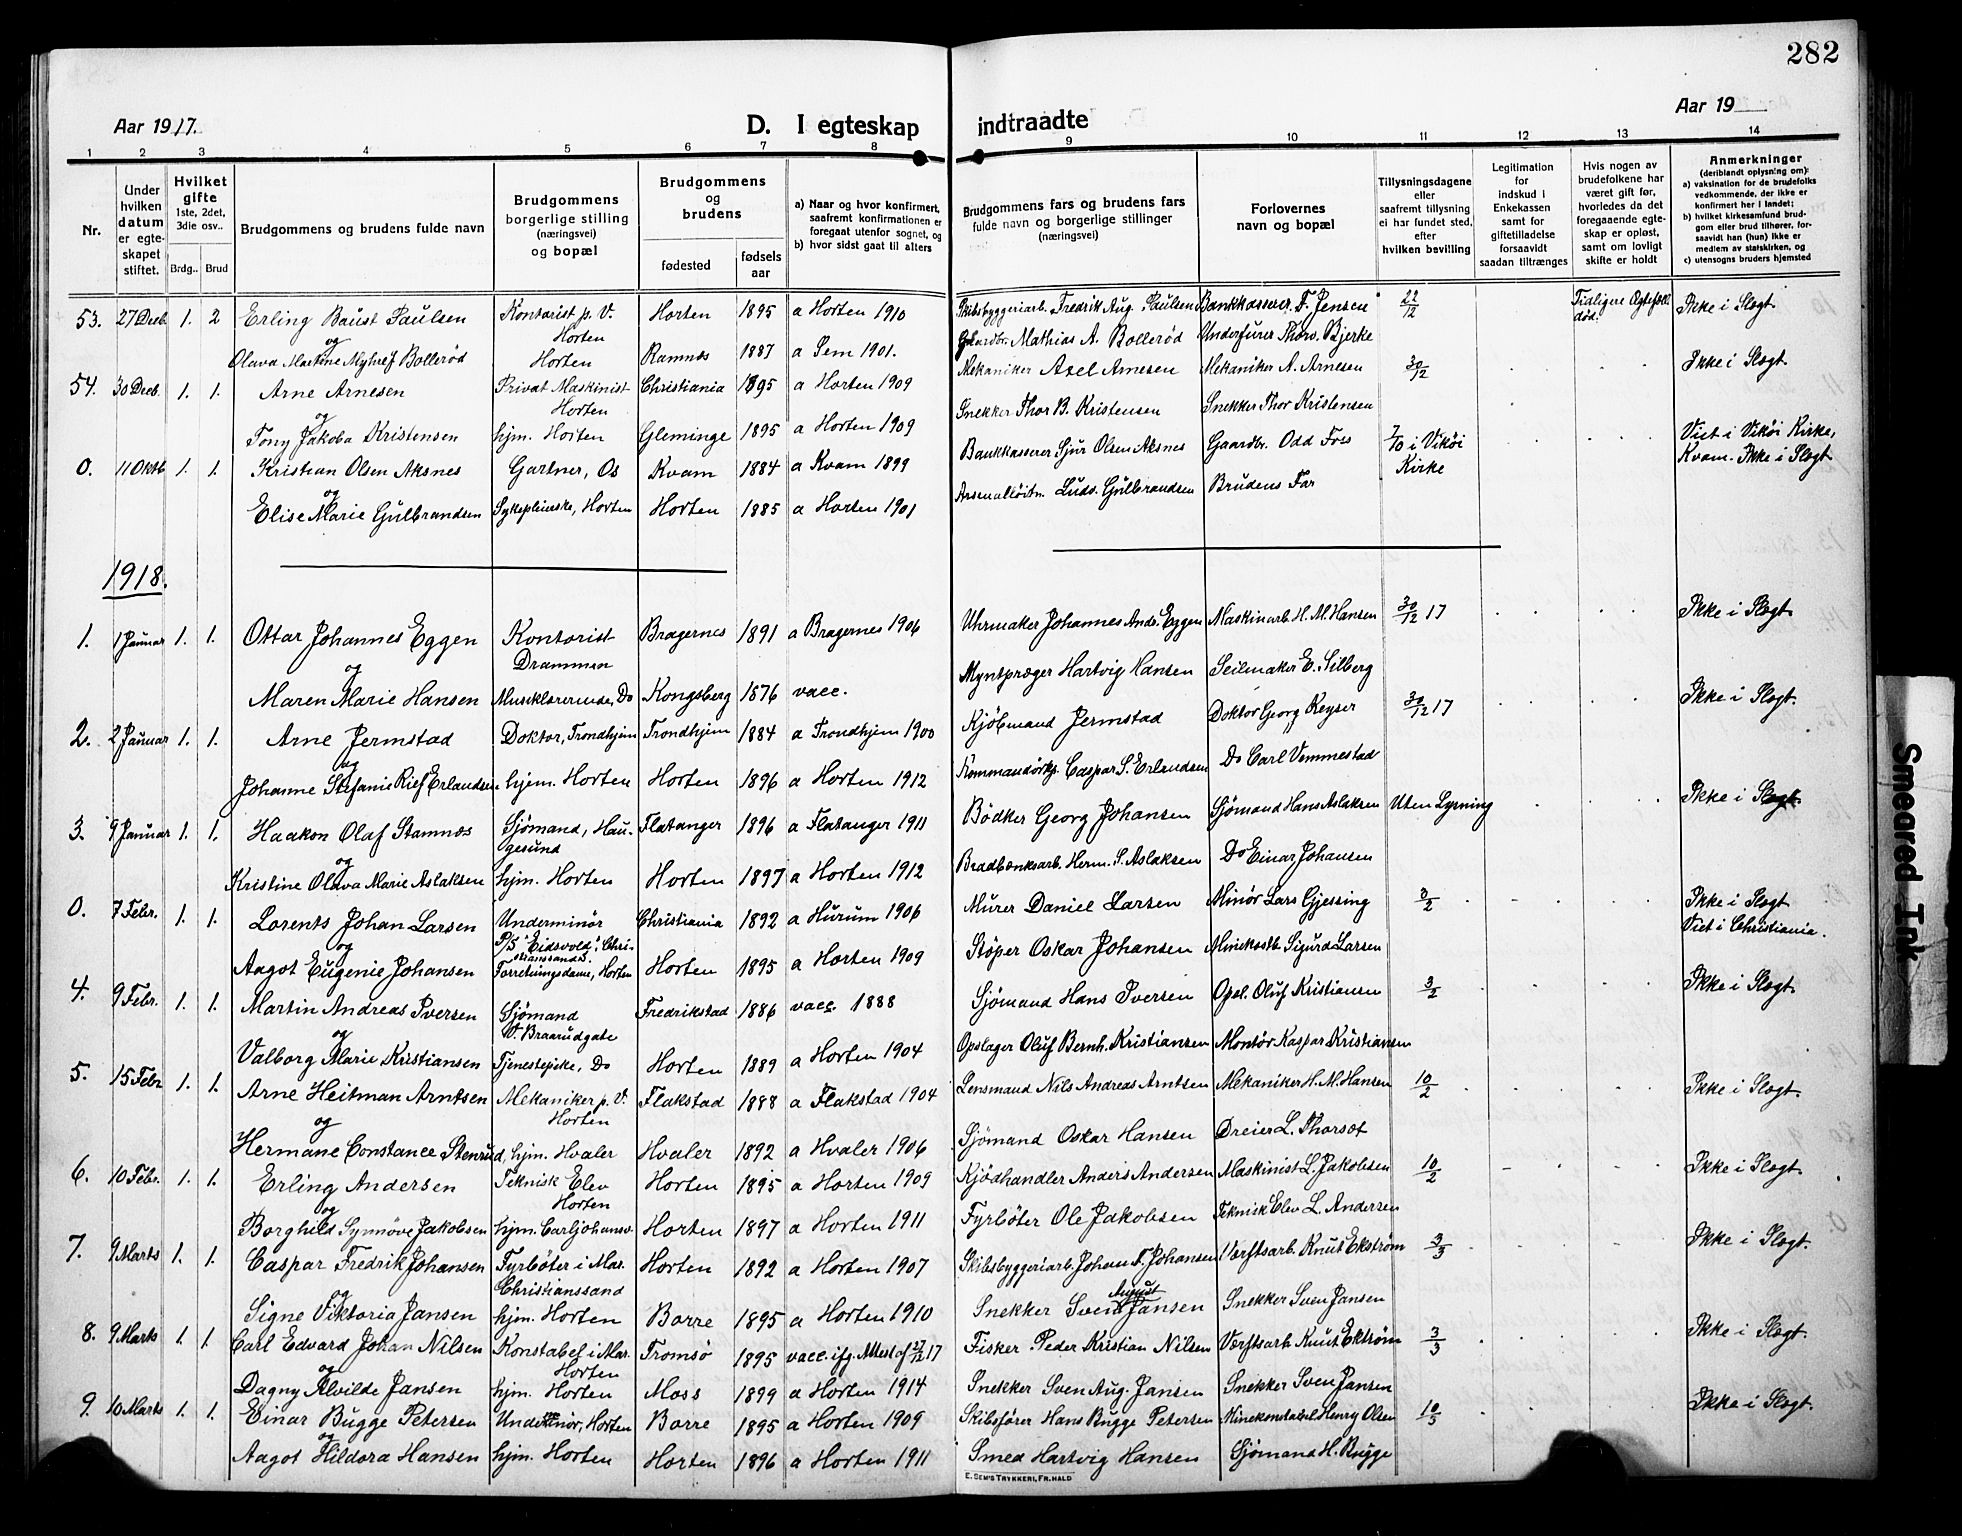 282
Aar 1917.
D. I egteskap
indtraadte
Aar 19
1 2 3 4 5 6 7 8 9 10 11 12 13 14
Nr.
Under hvilken datum er egteskapet stiftet.
Hvilket gifte
1ste, 2det, 3die osv..
Brdg.. Brud
Brudgommens og brudens fulde navn
Brudgommens borgerlige stilling (næringsvei) og bopæl
Brudgommens og brudens
fødested
fødsels aar
a) Naar og hvor konfirmert, saafremt konfirmationen er foregaat utenfor sognet, og
b) hvor sidst gaat til alters
Brudgommens fars og brudens fars fulde navn og borgerlige stillinger (næringsvei)
Forlovernes navn og bopæl
Tillysningsdagene eller saafremt tillysning ei har fundet sted, efter hvilken bevilling
Legitimation for indskud i Enkekassen samt for giftetilladelse forsaavidt saadan tiltrænges
Hvis nogen av brudefolkene har været gift før, hvorledes da det foregaaende egteskap er opløst, samt om lovligt skifte er holdt
Anmerkninger
(deriblandt oplysning om):
a) vaksination for de brudefolks vedkommende, der ikke er konfirmert her i landet;
b) hvilket kirkesamfund brudgom eller brud tilhører, forsaavidt han (hun) ikke er medlem av statskirken, og
c) utensogns bruders hjemsted
53. 27 Decb. 1. 2 Erling Baust Paulsen Kontorist p. V. Horten Horten 1895 a Horten 1910 Skibsbyggeriarb. Fredrik Aug. Paulsen Bankkasserer F. Jensen 22/12 Tidligere Ægtefolk død. Ikke i Slægt.
og
Olava Martine Myhre Bollerød Horten Ramnes 1887 a Sem 1901. Gaardbr. Mathias A. Bollerød Underfurer Thorv. Bjerke
54. 30 Decb. 1. 1. Arne Arnesen Privat Maskinist Horten Christiania 1895 a Horten 1909 Mekaniker Axel Arnesen Mekaniker A. Arnesen 30/12 Ikke i Slægt.
og
Tony Jakoba Kristensen hjm. Horten Gleminge 1895 a Horten 1909 Snekker Thor B. Kristensen Snekker Thor Kristensen
0. 11 Oktb 1. 1. Kristian Olsen Aksnes Gartner, Os Kvam 1884 a Kvam 1899 Bankkasserer Sjur Olsen Aksnes Gaardbr. Odd Foss 7/10 i Vikøi Kirke Viet i Vikøi Kirke, Kvam. Ikke i Slægt.
og
Elise Marie Gulbrandsen Sykepleierske, Horten Horten 1885 a Horten 1901 Arsenalløitn. Ludv. Gulbrandsen Brudens Far
1918.
1. 1 Januar 1. 1. Ottar Johannes Eggen Kontorist Drammen Bragernes 1891 a Bragernes 1906 Uhrmaker Johannes Andr. Eggen Maskinarb. H. M. Hansen 30/12 17 Ikke i Slægt.
og
Maren Marie Hansen Musiklærerinde, Do Kongsberg 1876 vacc. Myntpræger Hartvig Hansen Seilmaker E. Silberg
2. 2 Januar 1. 1. Arne Jermstad Doktor, Trondhjem Trondhjem 1884 a Trondhjem 1900 Kjøbmand Jermstad Doktor Georg Keyser 30/12 17 Ikke i Slægt.
og
Johanne Stefanie Rief Erlandsen hjem. Horten Horten 1896 a Horten 1912 Kommandørkp. Caspar S. Erlandsen Do Carl Vemmestad
3. 9 Januar 1. 1. Haakon Olaf Stamnæs Sjømand, Haugesund Flatanger 1896 a Flatanger 1911 Bødker Georg Johansen Sjømand Hans Aslaksen Uten Lysning Ikke i Slægt.
og
Kristine Olava Marie Aslaksen hjm. Horten Horten 1897 a Horten 1912 Brødbænksarb. Herm. S. Aslaksen Do Einar Johansen
0. 7 Febr. 1. 1. Lorents Johan Larsen Underminør P/S "Eidsvold", Christianssand. Christiania 1892 a Hurum 1906 Murer Daniel Larsen Minør Lars Gjessing 3/2 Ikke i Slægt Viet i Christiania.
og
Aagot Eugenie Johansen Forretningsdame, Horten Horten 1895 a Horten 1909 Støper Oskar Johansen Minekostb. Sigurd Larsen
4. 9 Febr. 1. 1. Martin Andreas Iversen Sjømand V. Braarudgate Fredrikstad 1886 vacc. 1888 Sjømand Hans Iversen Opsl. Oluf Kristiansen 3/2 Ikke i Slægt.
og
Valborg Marie Kristiansen Tjenestepike, Do Horten 1889 a Horten 1904 Opslager Oluf Bernh. Kristiansen Montør Kaspar Kristiansen
5. 15 Febr 1. 1. Arne Heitman Arntsen Mekaniker p. V. Horten Flakstad 1888 a Flakstad 1904 Lensmand Nils Andreas Arntsen Mekaniker H. M. Hansen 10/2 Ikke i Slægt.
og
Hermane Constance Stenrud, hjm. Hvaler Hvaler 1892 a Hvaler 1906 Sjømand Oskar Hansen Dreier L. Thorsøt
6. 10 Febr. 1. 1. Erling Andersen Teknisk Elev Horten Horten 1895 a Horten 1909 Kjødhandler Anders Andersen Maskinist L. Jakobsen 10/2 Ikke i Slægt.
og
Borghild Synnøve Jakobsen hjm. Carljohansv. Horten 1897 a Horten 1911 Fyrbøter Ole Jakobsen Teknisk Elev L. Andersen
7. 9 Marts 1. 1. Caspar Fredrik Johansen Fyrbøter i Mar. Christianssand Horten 1892 a Horten 1907 Skibsbyggeriarb. Johan F. Johansen Værftsarb. Knut Ekstrøm 3/3 Ikke i Slægt.
og
Signe Viktoria Jansen hjm. Horten Borre 1895 a Horten 1910 Snekker Sven August Jansen Snekker Sven Jansen
8. 9 Marts 1. 1. Carl Edvard Johan Nilsen Konstabel i Mar. Horten Tromsø 1895 vacc. ifg. Attest af 27/12 17 Fisker Peder Kristian Nilsen Værftsarb. Knut Ektrøm 3/3 Ikke i Slægt.
og
Dagny Alvilde Jansen hjm. Horten Moss 1899 a Horten 1914 Snekker Sven Aug. Jansen Snekker Sven Jansen
9. 10 Marts 1. 1. Einar Bugge Petersen Underminør, Horten Borre 1895 a Horten 1909 Skibsfører Hans Bugge Petersen Minekonstabel Henry Olsen 10/3 Ikke i Slægt.
og
Aagot Hildora Hansen hjm. Horten Horten 1896 a Horten 1911 Smed Hartvig Hansen Sjømand H. Bugge
E. SEM'S TRYKKERI, FR.HALD
Smeared Ink